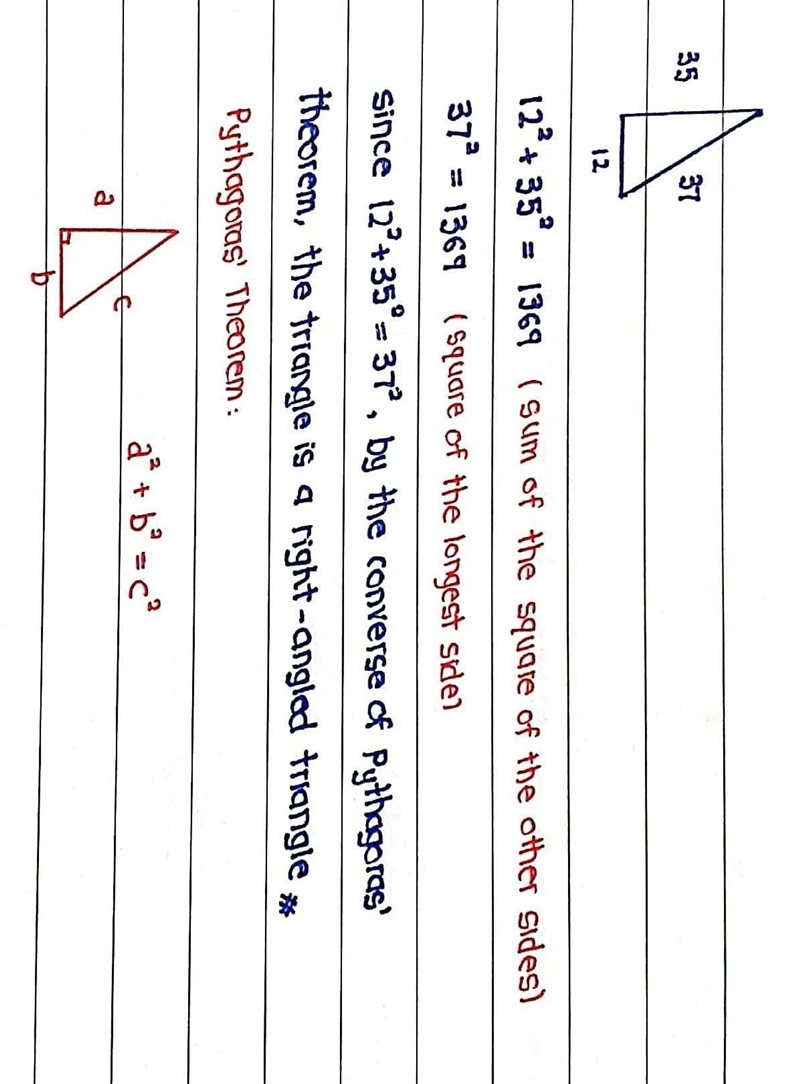 35
37
12
12² + 35² = 1369 (sum of the square of the other sides)
37² = 1369 (square of the longest side)
since 12² + 35² = 37², by the converse of Pythagoras'
theorem, the triangle is a right-angled triangle **
Pythagoras' Theorem:
a
c
b
a² + b² = c²